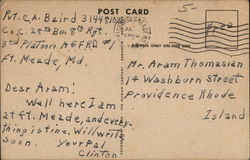 POST CARD
5-
Pvt. C.A. Baird 31448
Co C. 25th Bn 8th Rgt.
3rd Platoon A.G.F.R.D #1
Ft. Meade, Md.
Free
ADDRESS ONLY ON THIS SIDE
Mr. Aram Thomasian
14 Washburn Street
Providence Rhode
Island
Dear Aram:
Well here I am
at Ft. Meade, and every-
thing is fine. Will write
soon. Your Pal
Clinton